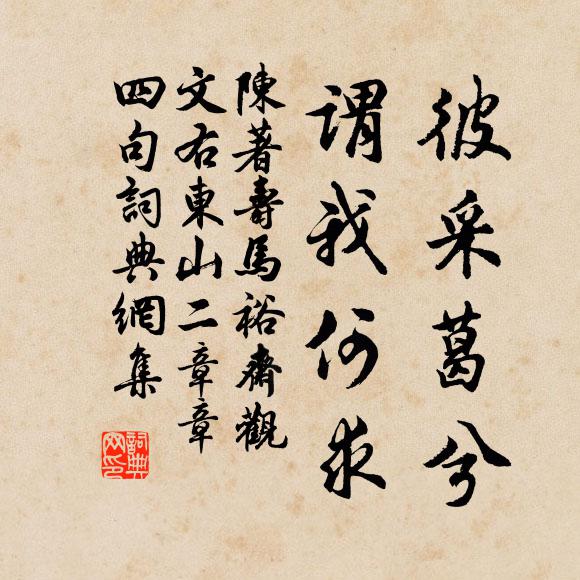 彼采葛兮
謂我何求
陳著壽馬裕齋觀
文右東山二章章
四句詞典網集
詞典網印